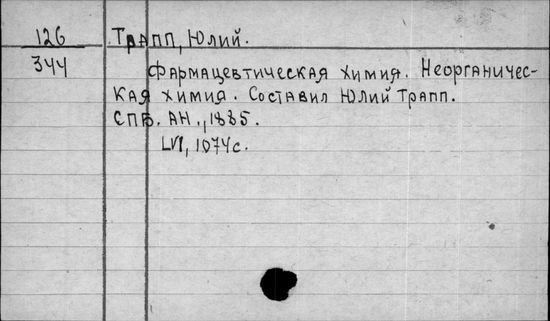 126 Трапп, Юлий.
344 Фармацевтическая химия. Неорганичес-
кая химия. Составил Юлий Трапп.
СПб. АН., 1885.
LVI, 1074 с.